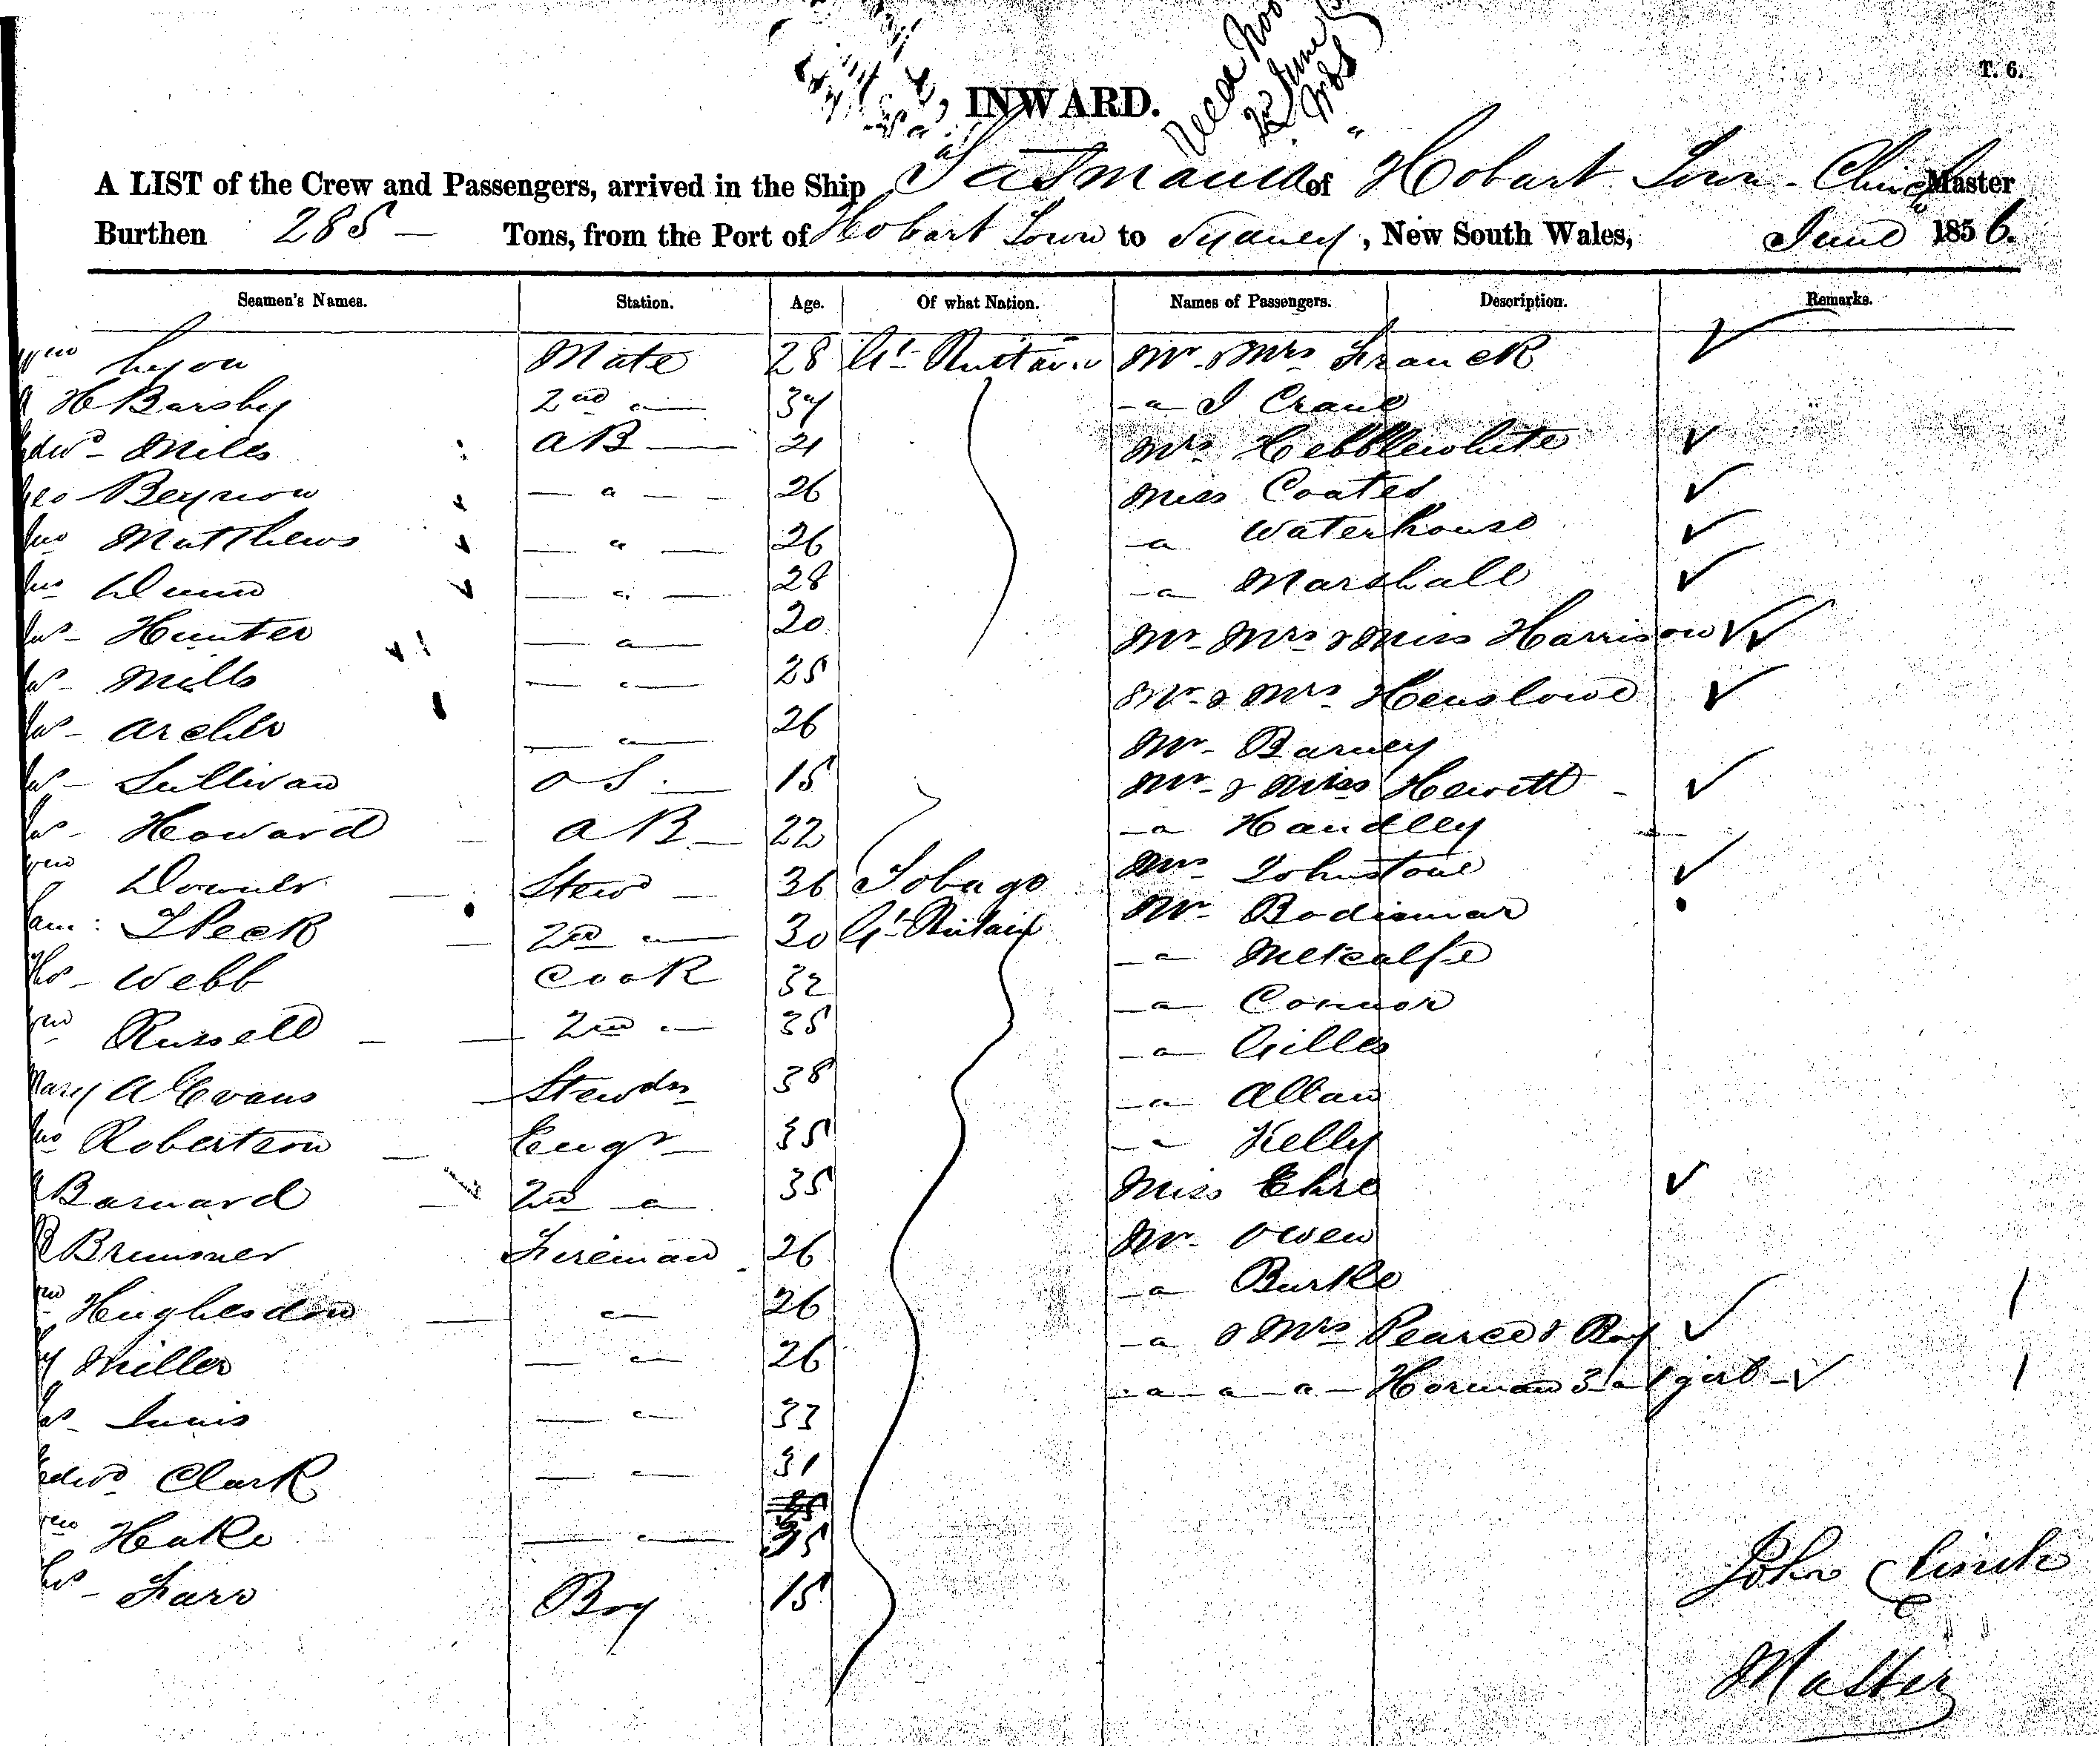 T. 6.
INWARD.
A LIST of the Crew and Passengers, arrived in the Ship "Tasmania" of Hobart Town - Clinch Master
Burthen 285 - Tons, from the Port of Hobart Town to Sydney, New South Wales, June 1856.
Seamen's Names. Station. Age. Of what Nation. Names of Passengers. Description. Remarks.
Wm Lyon Mate 28 Gt Brittain Mr & Mrs Franck
H Barsby 2nd " 34 " J Crane
Edwd Mills AB 21 Mrs Hebblewhite
Geo Beynon " 26 Miss Coates
Jno Matthews " 26 " Waterhouse
Jno Dunn " 28 " Marshall
Jas Hunter " 20 Mr Mrs & Miss Harrison
Jas Mills " 25 Mr & Mrs Henslowe
Jas Archer " 26 Mr Barney
Jas Sullivan O S 15 Mr & Miss Hewitt
Jas Howard AB 22 " Handley
Wm Downer Stewd 36 Tobago Mrs Johnstone
Sam: Peck 2nd " 30 Gt Britain Mr Bodiemar
Thos Webb Cook 32 " Metcalfe
Wm Russell 2nd " 35 " Connor
" Gilles
Mary A Evans Stewdss 38 " Allan
Jno Robertson Engr 35 " Kelly
Barnard 2nd " 35 Miss Ehre
R Brunner Fireman 26 Mr Owen
Wm Hughesdon " 26 " Burke
Miller " 26 " & Mrs Pearce & Boy
Innis " 33 " " " Horman 3 " girl
Edwd Clark " 31
Wm Hake " 35
Farr Boy 15
John Clinch
Master